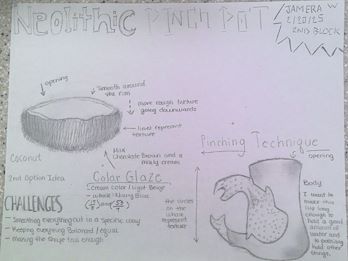 Neolithic Pinch Pot
JAMERA W
2/20/25
2nd Block
opening
Smooth around
the rim
more rough texture
going downwards
lines represent
texture
Mix
Chocolate Brown and a
milky cream
Coconut
2nd Option Idea
Color Glaze
Cream color / Light Beige
Pinching Technique
opening
Body
the circles
on the
whale
represent
texture
I want to
make this
big
enough to
hold a good
amount of
water and
hold
other things.
CHALLENGES
- Smoothing everything out in a specific way
- Keeping everything balanced / equal
- making the shape tall enough